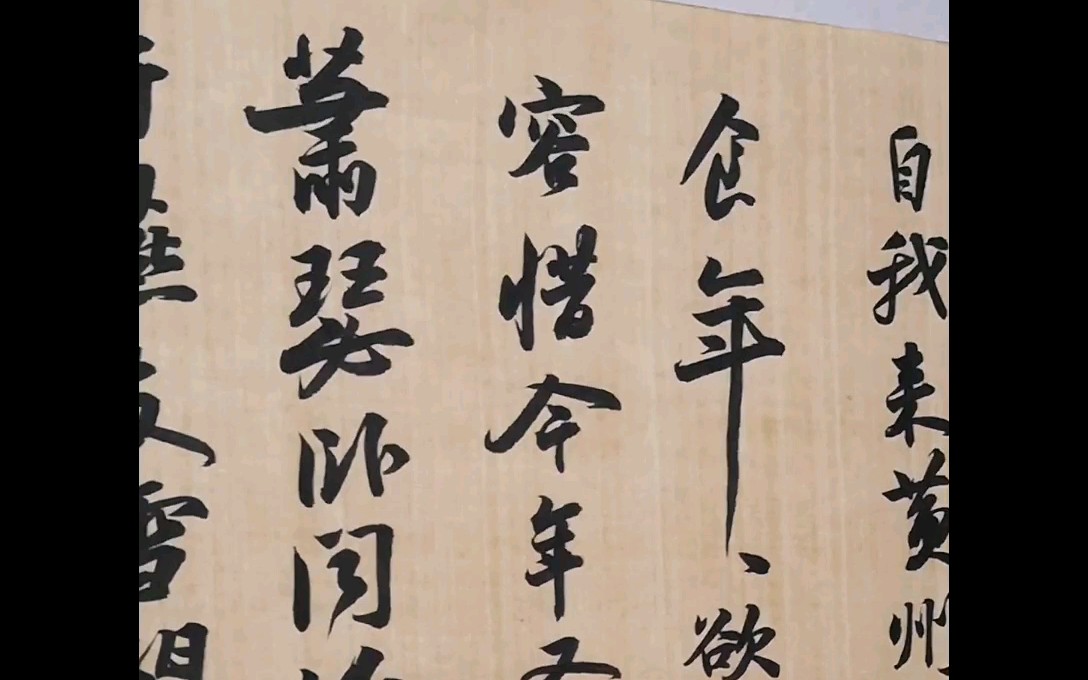 自我来黄州
食年、欲
容惜今年又
萧瑟卧闻
燕支雪